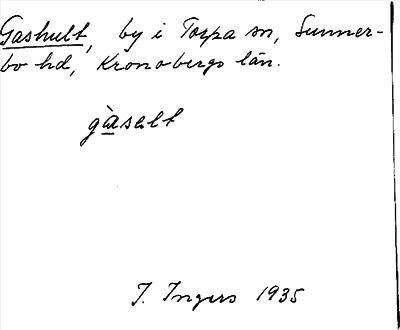 Gashult, by i Torpa sn, Sunner-
bo hd, Kronobergs län.
gàselt
I. Ingers 1935